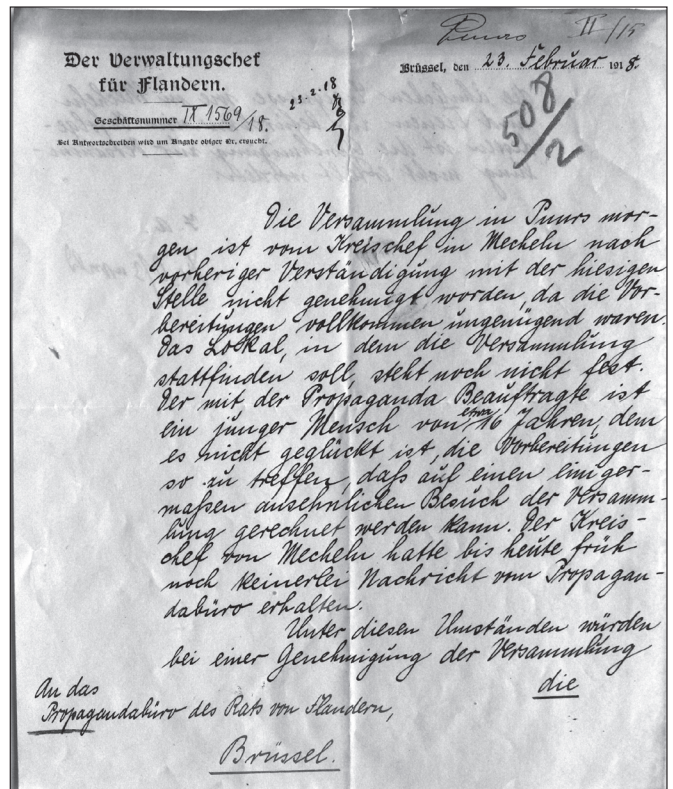 Puurs II/15
Der Verwaltungschef
für Flandern.
Brüssel, den 23. Februar 1918.
Geschäftsnummer IX 1569/18.
23.2.18
Bei Antwortschreiben wird um Angabe obiger Nr. ersucht.
508/2
Die Versammlung in Puurs mor-
gen ist vom Kreischef in Mecheln nach
vorheriger Verständigung mit der hiesigen
Stelle nicht genehmigt worden, da die Vor-
bereitungen vollkommen ungenügend waren.
Das Lokal, in dem die Versammlung
stattfinden soll, steht noch nicht fest.
Der mit der Propaganda Beauftragte ist
ein junger Mensch von etwa 16 Jahren, dem
es nicht geglückt ist, die Vorbereitungen
so zu treffen, daß auf einen einiger-
maßen ansehnlichen Besuch der Versamm-
lung gerechnet werden kann. Der Kreis-
chef von Mecheln hatte bis heute früh
noch keinerlei Nachricht vom Propagan-
dabüro erhalten.
Unter diesen Umständen würden
bei einer Genehmigung der Versammlung
die
An das
Propagandabüro des Rats von Flandern,
Brüssel.